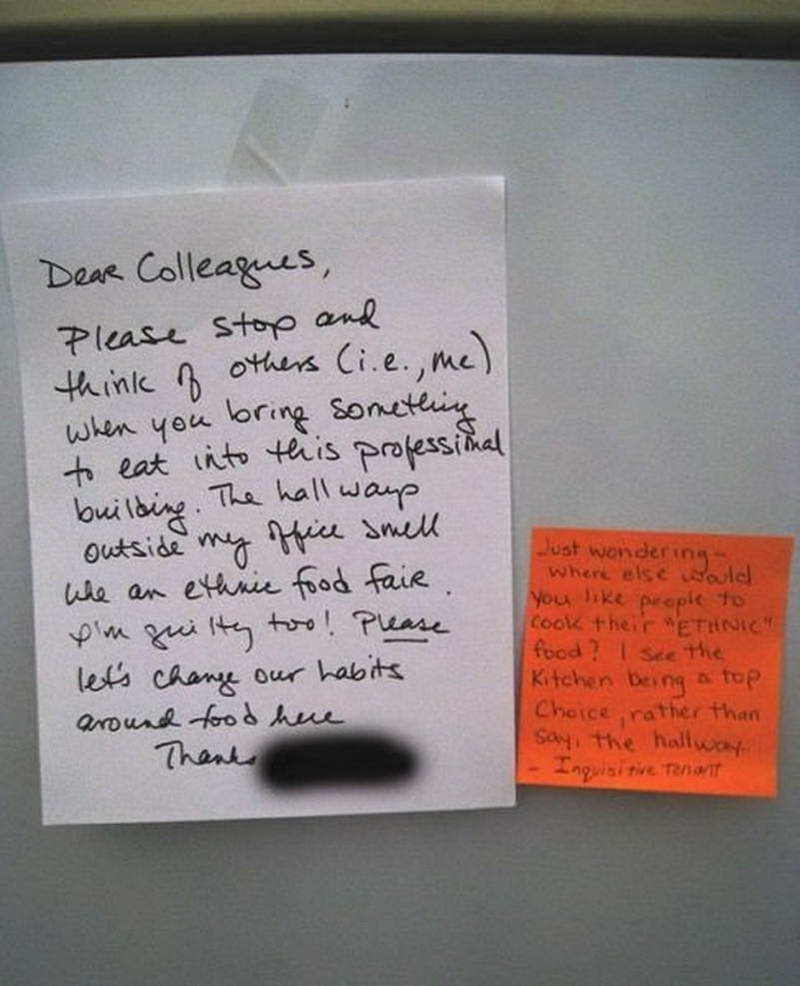 Dear Colleagues,
Please stop and
think of others (i.e., me)
when you bring something
to eat into this professional
building. The hallways
outside my office smell
like an ethnic food fair.
I'm guilty too! Please
let's change our habits
around food here
Thanks
Just wondering-
where else would
you like people to
cook their "ETHNIC"
food? I see the
kitchen being a top
choice, rather than
say, the hallway.
- Inquisitive Tenant